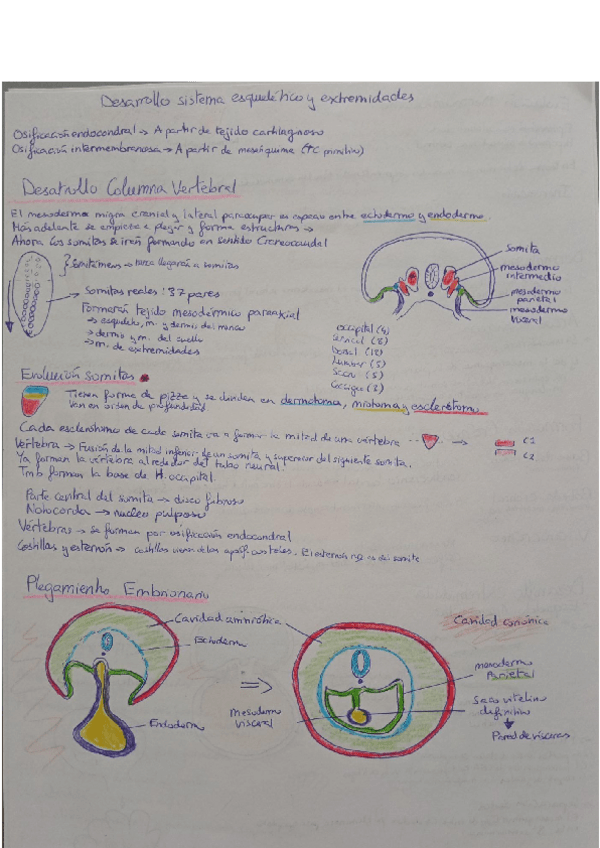 Desarrollo sistema esquelético y extremidades
Osificación endocondral → A partir de tejido cartilaginoso
Osificación intermembranosa → A partir de mesénquima (TC primitivo)
Desarrollo Columna Vertebral
El mesodermo migra craneal y lateral para ocupar es espacio entre ectodermo y endodermo.
Más adelante se empieza a plegar y forma estructuras →
Ahora los somitas se iran formando en sentido Craneocaudal
→ nunca llegarán a somitas
Somitas reales: 37 pares
Formarán tejido mesodérmico paraxial
→ esqueleto, m. y dermis del tronco
→ dermis y m. del cuello
→ m. de extremidades
somita
mesodermo
intermedio
mesodermo
parietal
mesodermo
visceral
occipital (4)
Cervical (8)
Dorsal (12)
Lumbar (5)
Sacro (5)
Coccigeo (3)
Evolución somitas
Tienen forma de pizza y se dividen en dermatoma, miotoma y esclerotomo
Van en orden de profundidad
Cada esclerotomo de cada somita va a formar la mitad de una vértebra
→ C1
C2
Vértebra → Fusión de la mitad inferior de un somita y superior del siguiente somita.
Ya forman la vértebra alrededor del tubo neural.
Tmb forman la base de H. occipital.
Parte central del somita → disco fibroso
Notocorda → nucleo pulposo
Vértebras → se forman por osificación endocondral
Costillas y esternón → costillas vienen de las apófisis costales. El esternón no es de somite
Plegamiento Embrionario
Cavidad amniótica
Ectodermo
Endodermo
Cavidad coriónica
mesodermo
Parietal
Mesodermo
visceral
Saco vitelino
definitivo
Pared de vísceras